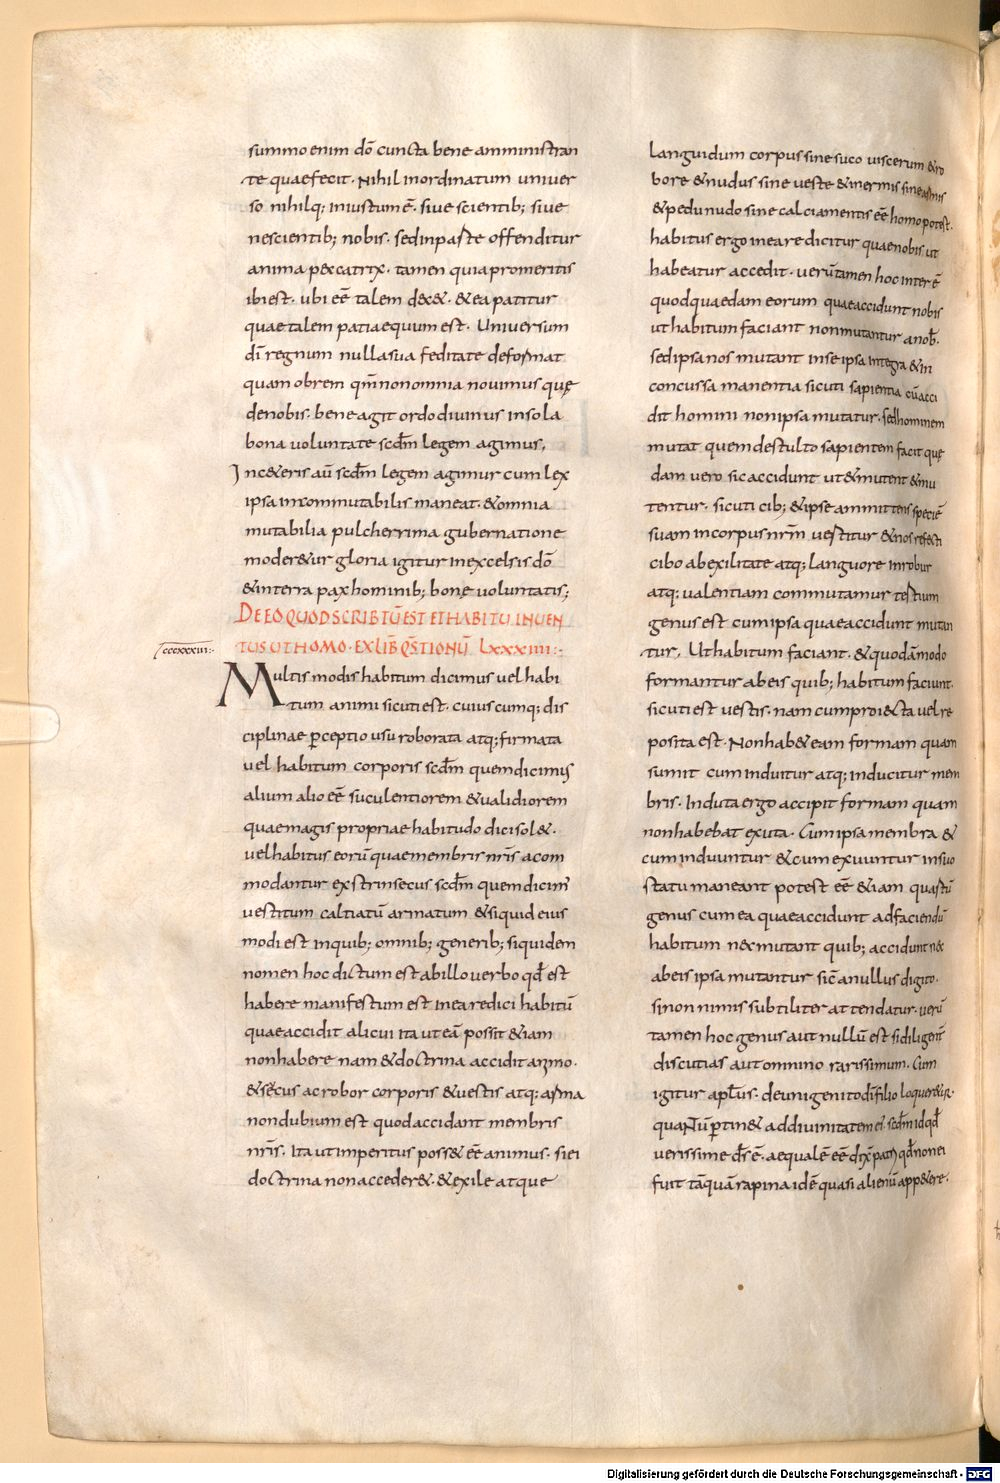 summo enim dō cuncta bene amministran
te quae fecit. Nihil inordinatum univer
so nihilq; iniustum ē. sive scientib; sive
nescientib; nobis. sed inparte offenditur
anima peccatrix. tamen quia pro meritis
ibi est. ubi eē talem decet. & ea patitur
quae talem pati aequum est. Universum
dī regnum nulla sua feditate deformat
quam obrem qm̄ non omnia novimus quę
de nobis. bene agit ordo divinus in sola
bona voluntate scdm̄ legem agimus.
In ceteris aū scdm̄ legem agimur cum lex
ipsa incommutabilis maneat. & omnia
mutabilia pulcherrima gubernatione
moder&ur gloria igitur in excelsis dō
& in terra pax hominib; bonę voluntatis;
DE EO QUOD SCRIBTŪ EST ET HABITU INVEN
TUS UT HOMO. EX LIB̄ Q̄STIONŪ LXXXIIII:-
ccccxxxiii:-
Multis modis habitum dicimus vel habi
tum animi sicuti est. cuiuscumq; dis
ciplinae p̄ceptio usu roborata atq; firmata
vel habitum corporis scdm̄ quem dicimus
alium alio eē suculentiorem & validiorem
quae magis propriae habitudo dici sol&.
vel habitus eorū quae membris nr̄is acom
modantur exstrinsecus scdm̄ quem dicim'
vestitum caltiatū armatum & siquid eius
modi est in quib; omnib; generib; siquidem
nomen hoc dictum est ab illo verbo qđ est
habere manifestum est in ea re dici habitū
quae accidit alicui ita ut eā possit &iam
non habere nam & doctrina accidit animo.
& sęcus ac robor corporis & vestis atq; arma
non dubium est quod accidant membris
nr̄is. Ita ut imperitus poss& eē animus. si ei
doctrina non acceder&. & exile atque
languidum corpus sine suco viscerum & ro
bore & nudus sine veste & inermis sine armis
& pedu nudo sine calciamentis eē homo potest.
habitus ergo in ea re dicitur quae nobis ut
habeatur accedit. verūtamen hoc inter ē
quod quaedam eorum quae accidunt nobis
ut habitum faciant non mutantur a nob̄.
sed ipsa nos mutant in se ipsa integra & in
concussa manentia sicuti sapientia cū acci
dit homini non ipsa mutatur. sed hominem
mutat quem de stulto sapientem facit quę
dam vero sic accidunt ut & mutent & mu
tentur. sicuti cib; & ipse ammittens speciē
suam in corpus nr̄m vertitur & nos refecti
cibo ab exilitate atq; languore in robur
atq; valentiam commutamur tertium
genus est cum ipsa quae accidunt mutan
tur. Ut habitum faciant. & quodāmodo
formantur ab eis quib; habitum faciunt.
sicuti est vestis. nam cum proiecta vel re
posita est. Non hab& eam formam quam
sumit cum induitur atq; inducitur mem
bris. Induta ergo accipit formam quam
non habebat exuta. Cum ipsa membra &
cum induuntur & cum exuuntur in suo
statu maneant potest eē &iam quartū
genus cum ea quae accidunt ad faciendū
habitum nec mutant quib; accidunt nec
ab eis ipsa mutantur sic̄ anullus digito.
si non nimis subtiliter attendatur. verū
tamen hoc genus aut nullū est si diligenť
discutias aut omnino rarissimum. Cum
igitur apłus. de unigenito dī filio loquer&ur.
quantū p̄tin& ad divinitatem ei'. scdm̄ id qđ
verissime dṡ ē. aequalē eē dix̄ patri qđ non ei
fuit tāquā rapina idē quasi alienū app&ere.
Digitalisierung gefördert durch die Deutsche Forschungsgemeinschaft - DFG